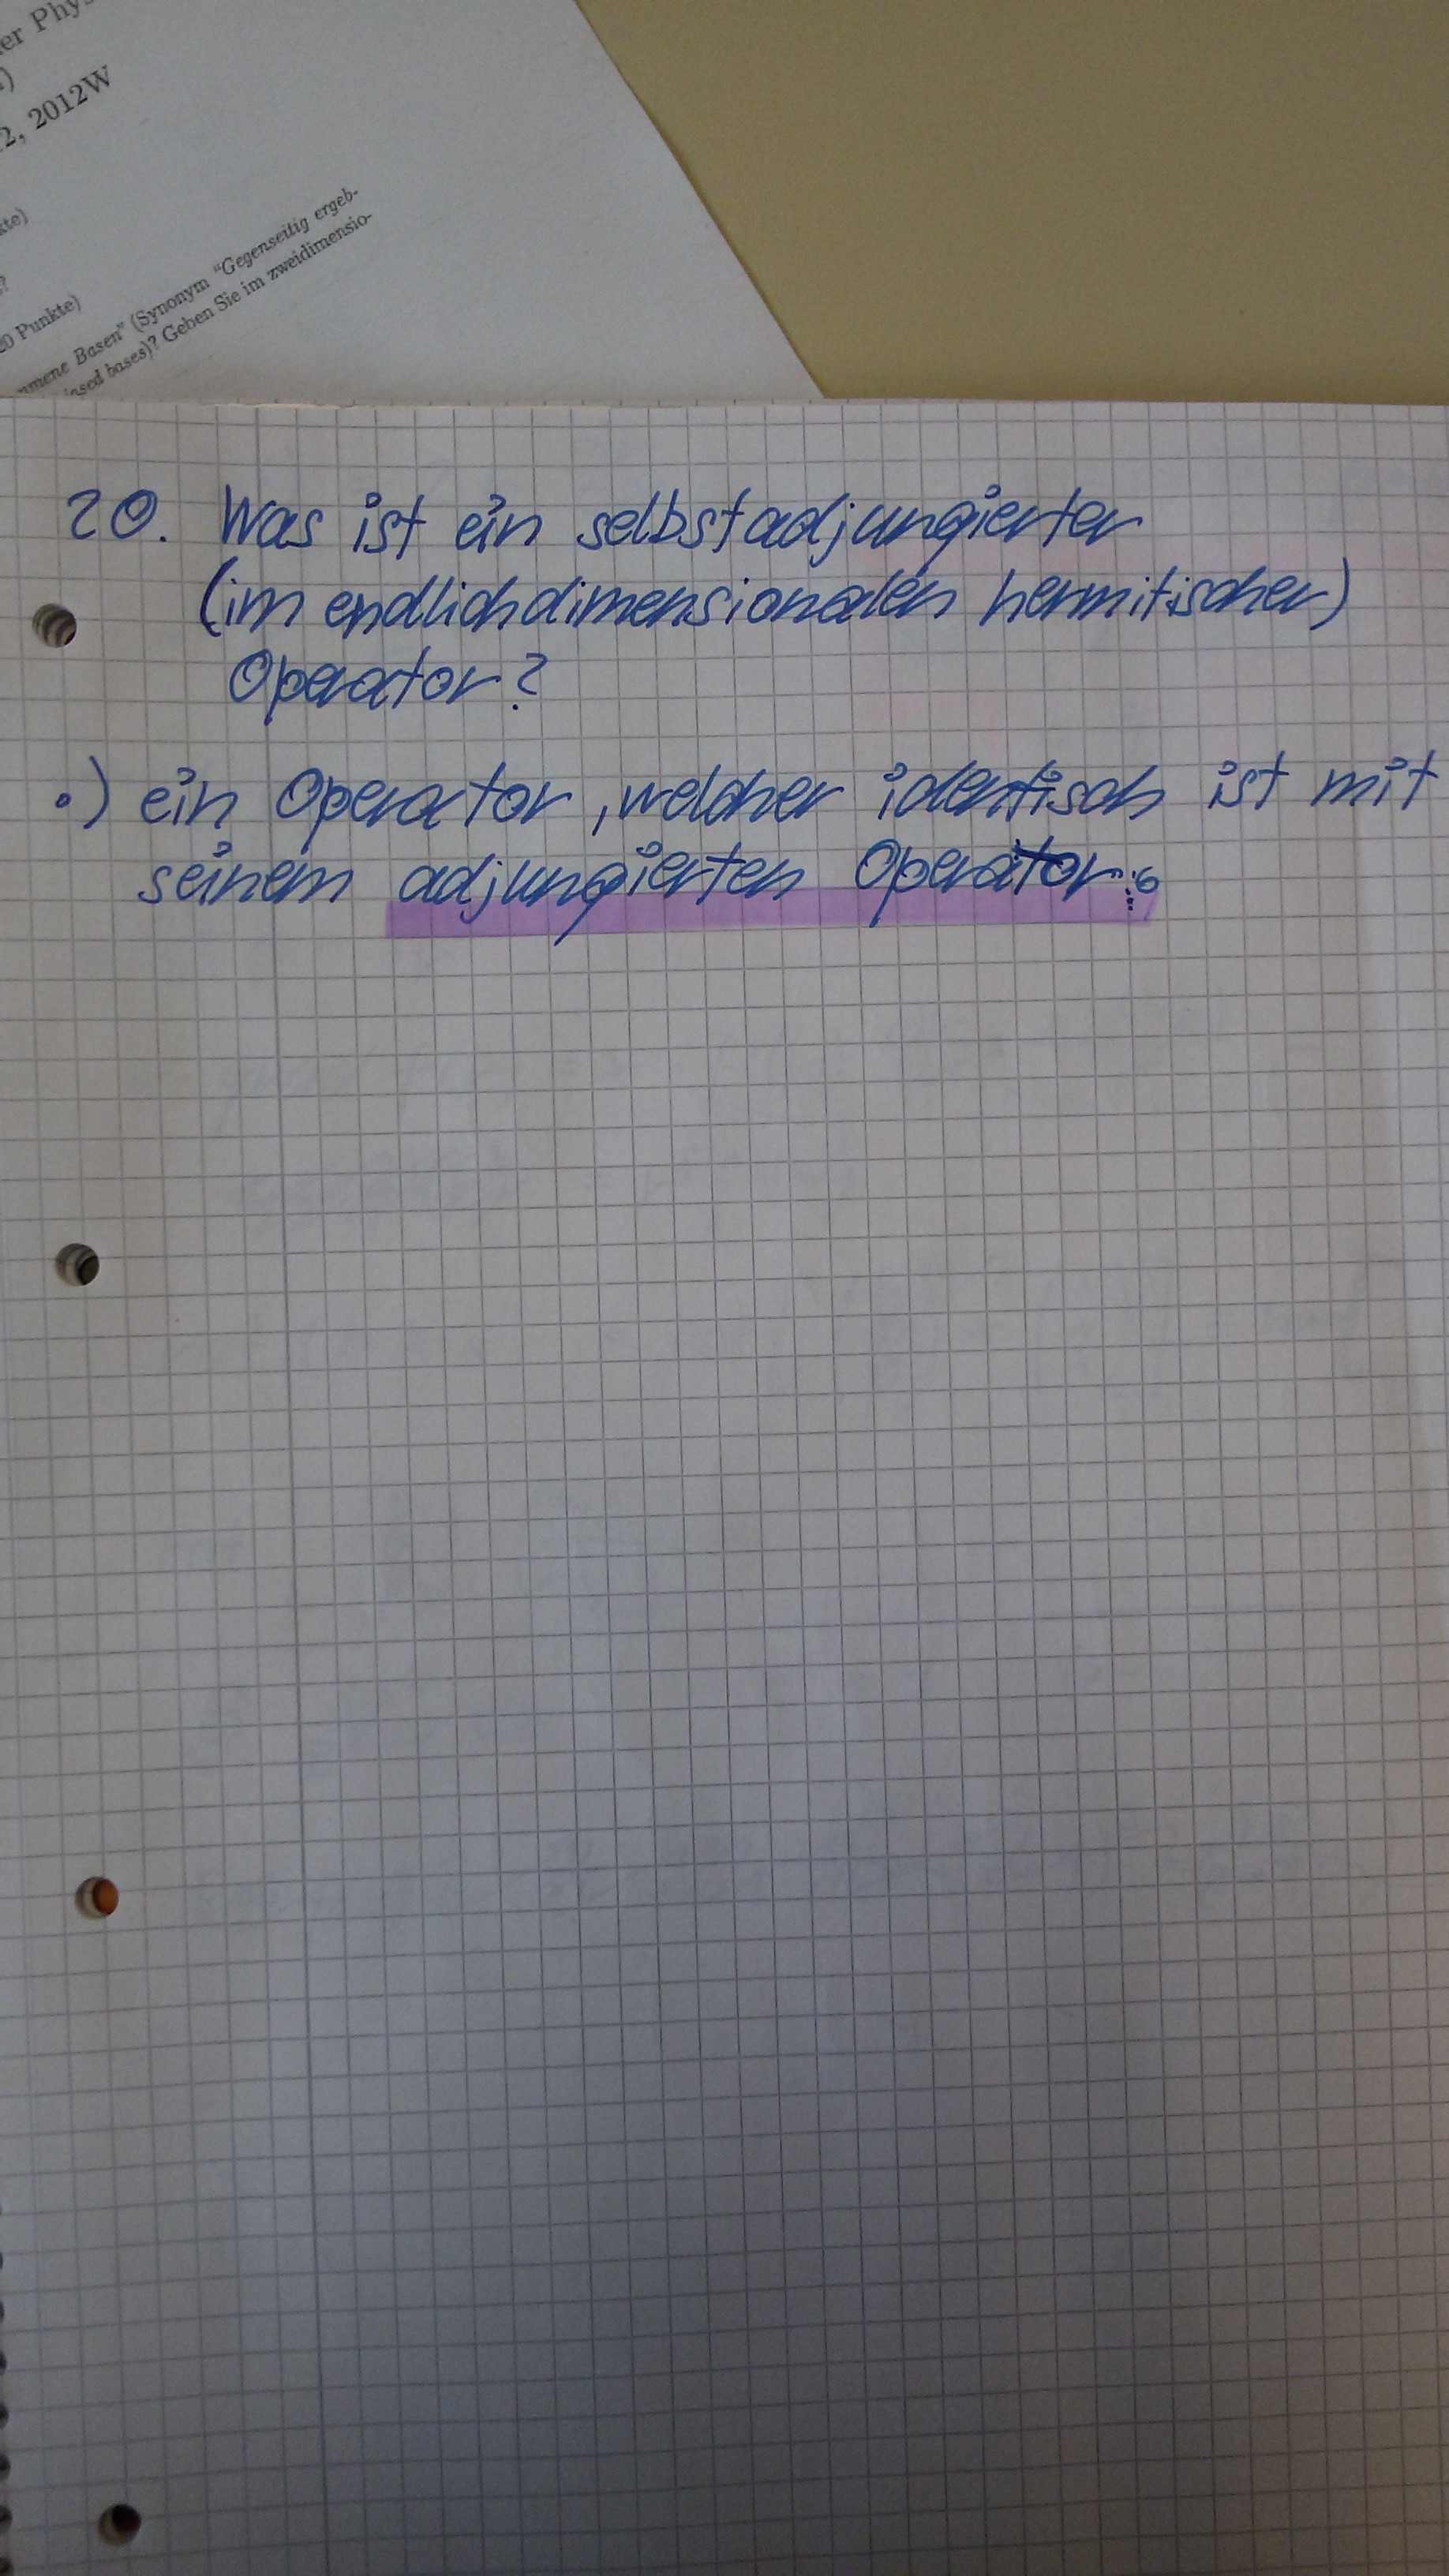 er Phys
2, 2012W
kte)
20 Punkte)
mmene Basen" (Synonym "Gegenseitig ergeb-
iased bases)? Geben Sie im zweidimensio-
20. Was ist ein selbstadjungierter
(im endlichdimensionalen hermitischer)
Operator?
•) ein Operator, welcher identisch ist mit
seinem adjungierten Operator